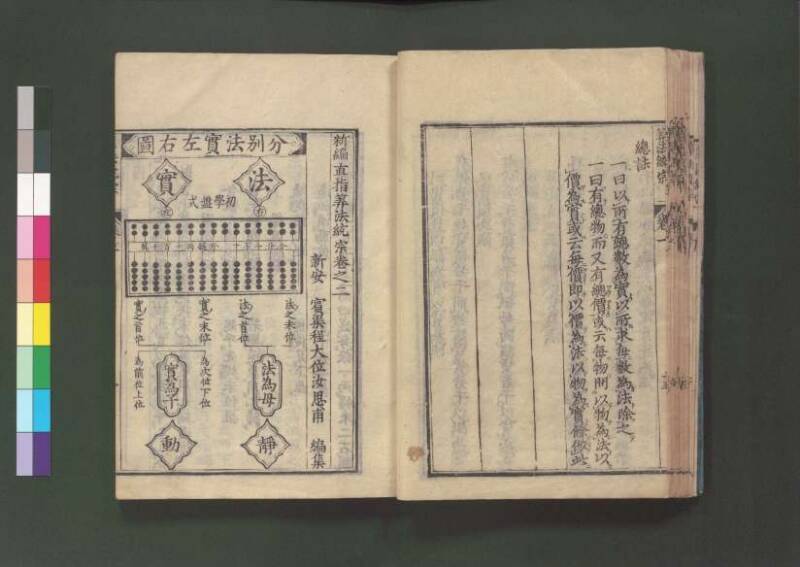 總法
一曰以所有總數為實以所求每數為法除之
一曰有總物而又有總價或云每物則以物為法以
價為實或云每價即以價為法以物為實餘倣此
新編直指筭法統宗卷之二
新安 賓渠程大位汝思甫 編集
分別法實左右圖
法
實
初學盤式
法之末位
法之首位
實之末位
實之首位
為次位下位
為前位上位
法為母
實為子
靜
動